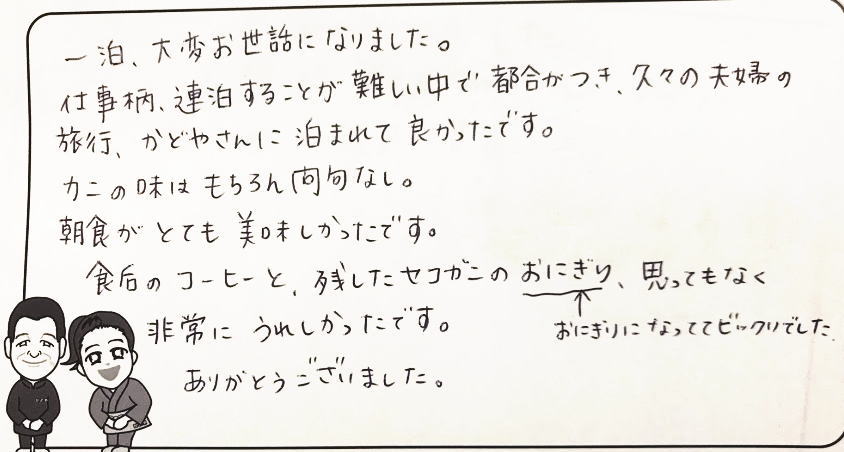 一泊、大変お世話になりました。
仕事柄、連泊することが難しい中で都合がつき、久々の夫婦の
旅行、かどやさんに泊まれて良かったです。
カニの味はもちろん文句なし。
朝食がとても美味しかったです。
食后のコーヒーと、残したセコガニのおにぎり、思ってもなく
おにぎりになっててビックリでした。
非常にうれしかったです。
ありがとうございました。